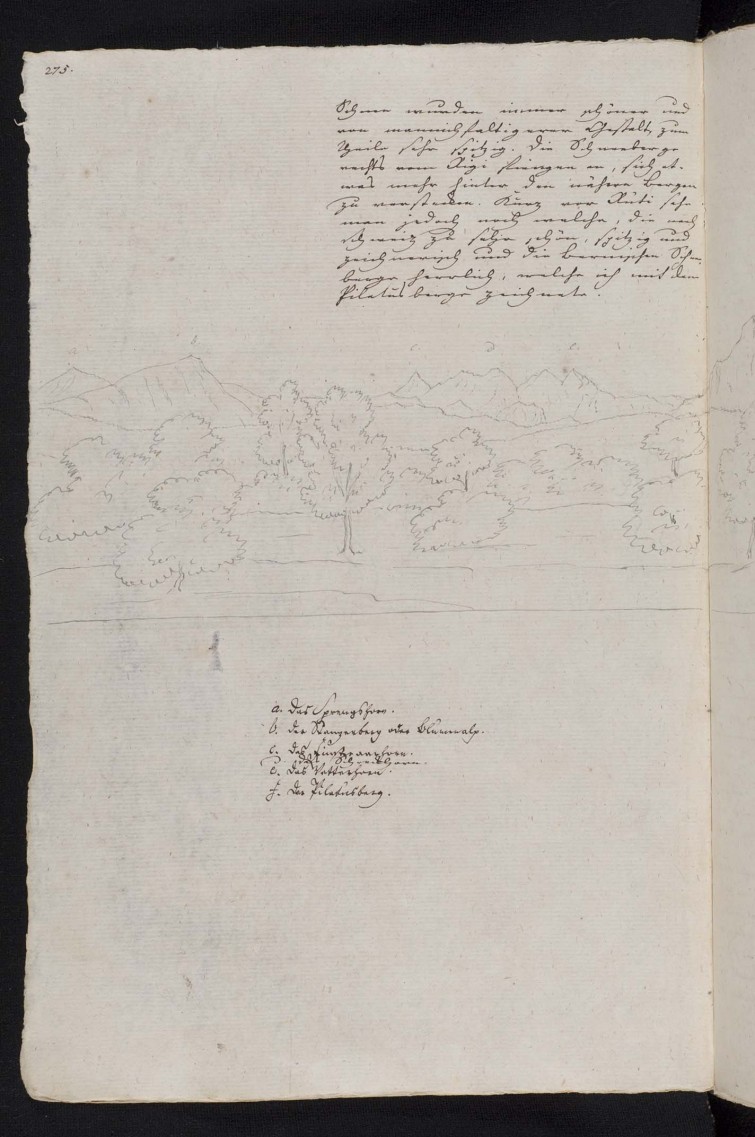 275.
Schnee wurden immer schöner und
von mannichfaltigerer Gestalt, zum
Theile sehr spitzig. Die Schneeberge
rechts vom Rigi fiengen an, sich et-
was mehr hinter den nähern Bergen
zu verstecken. Kurz vor Rüti sahe
man jedoch noch welche, die nach
Schweiz zu sehr schön, spitzig und
zeichnerisch und die Bernischen Schnee-
berge herrlich, welche ich mit dem
Pilatusberge zeichnete.
a. das
b. der oder Blumalp.
c. das Finsteraarhorn.
das Schreckhorn.
das Vetterhorn.
f. der Pilatusberg.